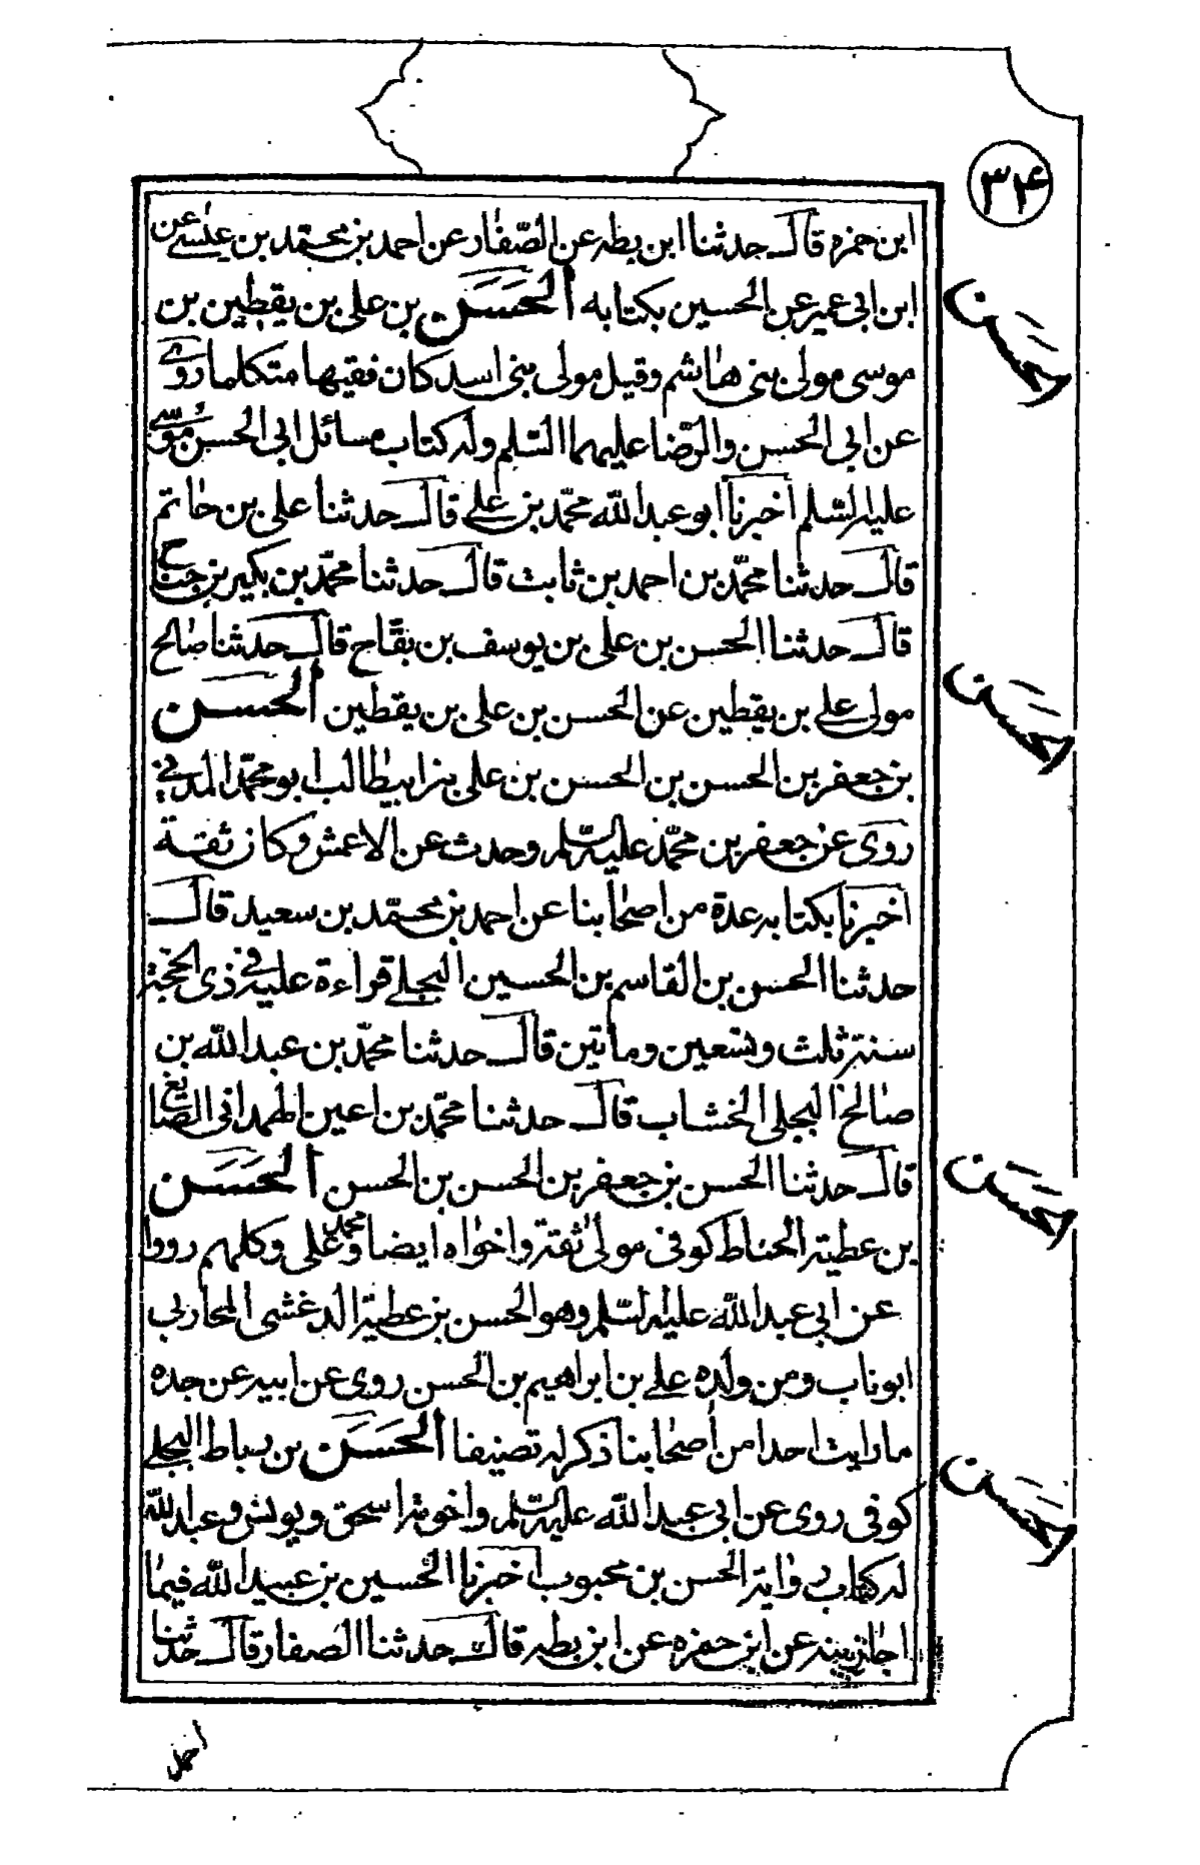 ٣۴
ابن حمزه قال حدثنا ابن بطه عن الصّفار عن احمد بن محمّد بن عيسى عن
ابن ابى عمير عن الحسين بكتابه الحَسَن بن على بن يقطين بن
موسى مولى بنى هاشم وقيل مولى بنى اسد كان فقيها متكلما روى
عن ابى الحسن والرّضا عليهما السّلم وله كتاب مسائل ابى الحسن موسى
عليه السّلم اخبرنا ابو عبد الله محمّد بن على قال حدثنا على بن حاتم
قال حدثنا محمّد بن احمد بن ثابت قال حدثنا محمّد بن بكير بن جناح
قال حدثنا الحسن بن على بن يوسف بن بقّاح قال حدثنا صالح
مولى على بن يقطين عن الحسن بن على بن يقطين الحسن
بن جعفر بن الحسن بن الحسن بن على بن ابيطالب ابو محمّد المدنى
روى عن جعفر بن محمّد عليه السّلم وحدث عن الاعمش وكان ثقة
اخبرنا بكتابه عدة من اصحابنا عن احمد بن محمّد بن سعيد قال
حدثنا الحسن بن القاسم بن الحسين البجلى قراءة عليه فى ذى الحجة
سنة ثلث وتسعين ومأتين قال حدثنا محمّد بن عبد الله بن
صالح البجلى الخشاب قال حدثنا محمّد بن اعين الهمدانى الصّايغ
قال حدثنا الحسن بن جعفر بن الحسن بن الحسن الحَسَن
بن عطية الحناط كوفى مولى ثقة واخواه ايضا محمد وعلى وكلهم رووا
عن ابى عبد الله عليه السّلم وهو الحسن بن عطية الدغشى المحاربى
ابو ناب ومن ولده على بن ابراهيم بن الحسن روى عن ابيه عن جده
ما رايت احدا من أصحابنا ذكر له تصنيفا الحَسَن بن سباط البجلى
كوفى روى عن ابى عبد الله عليه السّلم واخوته اسحق ويونس وعبد الله
له كتاب رواية الحسن بن محبوب اخبرنا الحسين بن عبيد الله فيما
اجازنيه عن ابن حمزه عن ابن بطه قال حدثنا الصفار قال حدثنا
حَسَن
حَسَن
حَسَن
حَسَن
احمد